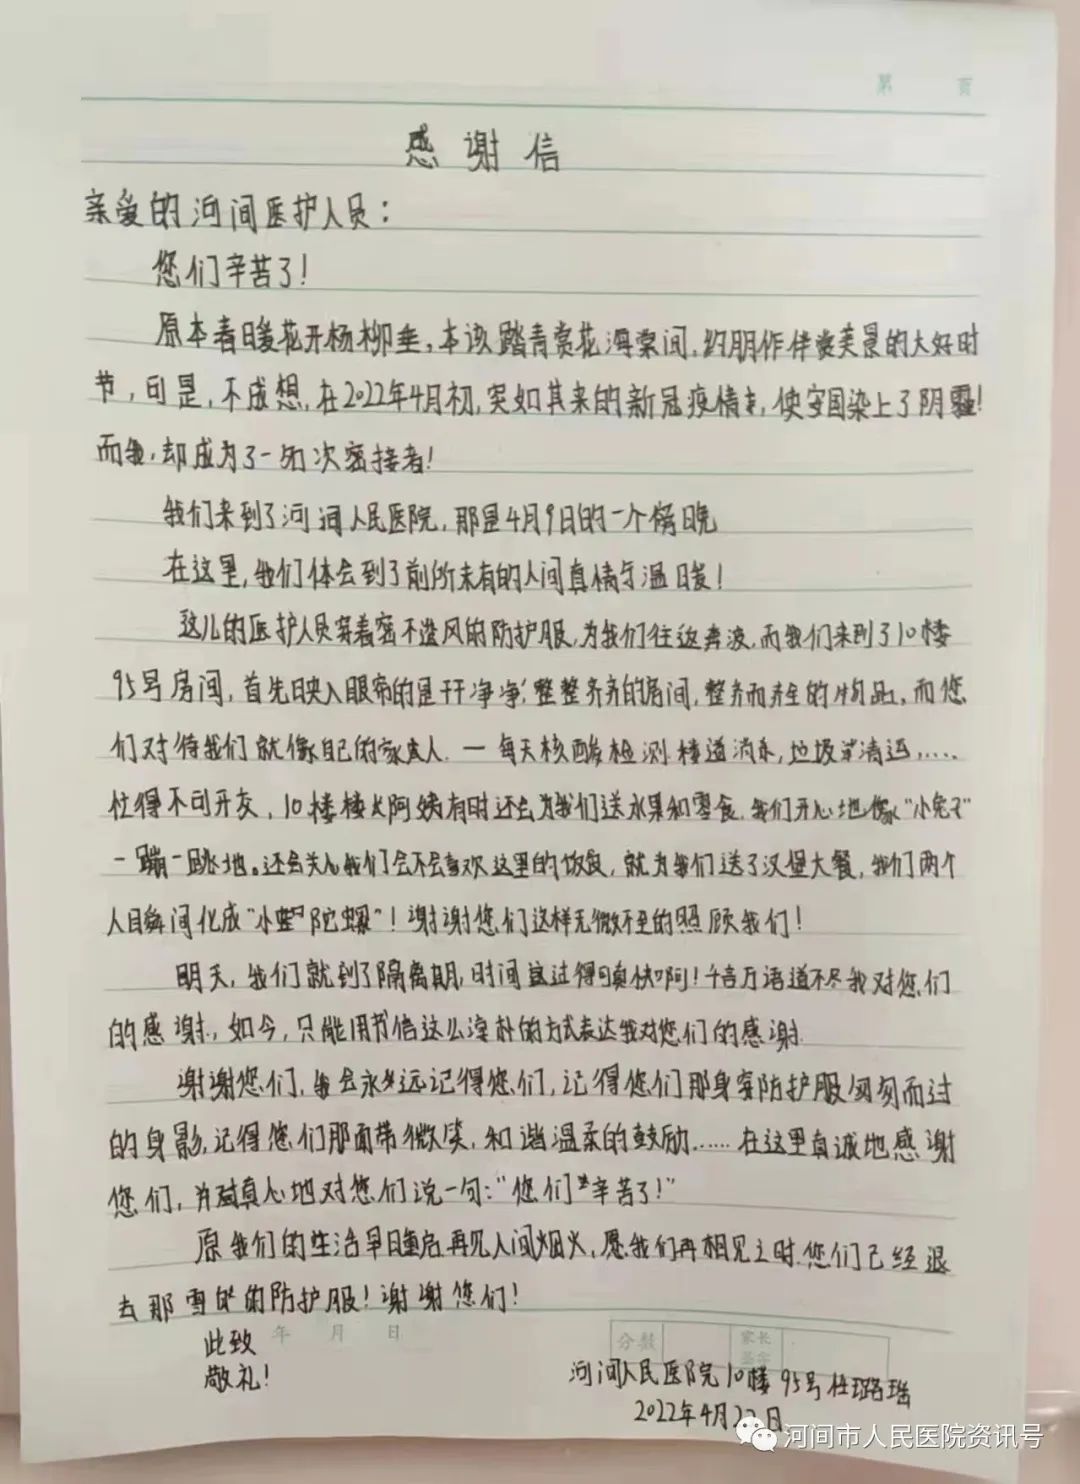 第 页
感谢信
亲爱的河间医护人员：
您们辛苦了！
原本春日暖花开杨柳垂，本该踏青赏花海棠间，约朋作伴赏美景的大好时
节，可是，不成想，在2022年4月初，突如其来的新冠疫情，使安国染上了阴霾！
而我，却成为了一名次密接者！
我们来到了河间人民医院，那是4月9日的一个傍晚
在这里，我们体会到了前所未有的人间真情与温暖！
这儿的医护人员穿着密不透风的防护服，为我们往返奔波，而我们来到了10楼
95号房间，首先映入眼帘的是干干净净，整整齐齐的房间，整齐而齐全的物品，而您
们对待我们就像自己的家人一每天核酸检测，楼道消杀，垃圾清运……
忙得不可开交，10楼楼长阿姨有时还会为我们送水果和零食，我们开心地像“小兔子”
一蹦一跳地。还会关心我们会不会喜欢这里的饭食，就为我们送了汉堡大餐，我们两个
人瞬间化成“小陀螺”！谢谢您们这样无微不至的照顾我们！
明天，我们就到了隔离期，时间过得真快啊！千言万语道不尽我对您们
的感谢，如今，只能用书信这么淳朴的方式表达我对您们的感谢
谢谢您们，我会永远记得您们，记得您们那身穿防护服匆匆而过
的身影，记得您们那面带微笑，和谐温柔的鼓励……在这里真诚地感谢
您们，并真心地对您们说一句：“您们辛苦了！”
原我们的生活早日重启，再见人间烟火，愿我们再相见之时，您们已经退
去那雪白的防护服！谢谢您们！
此致 年 月 日
敬礼！
分数 家长
河间人民医院10楼95号任璐瑶
2022年4月22日
河间市人民医院资讯号